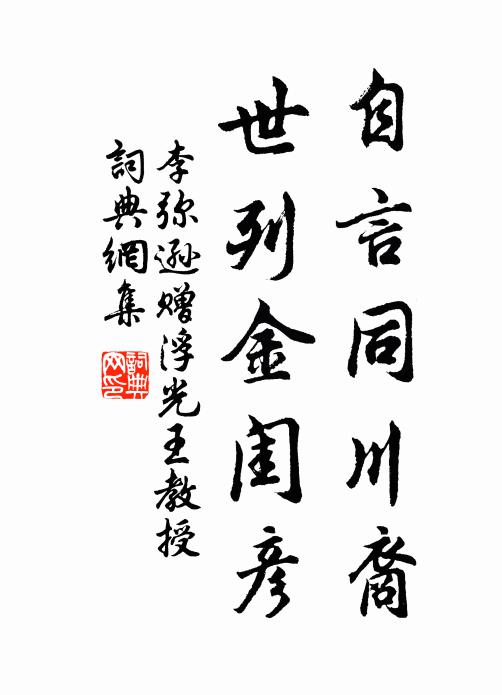 自言同川裔
世列金闺彦
李弥逊赠浮光王教授
詞典網集
詞典网印